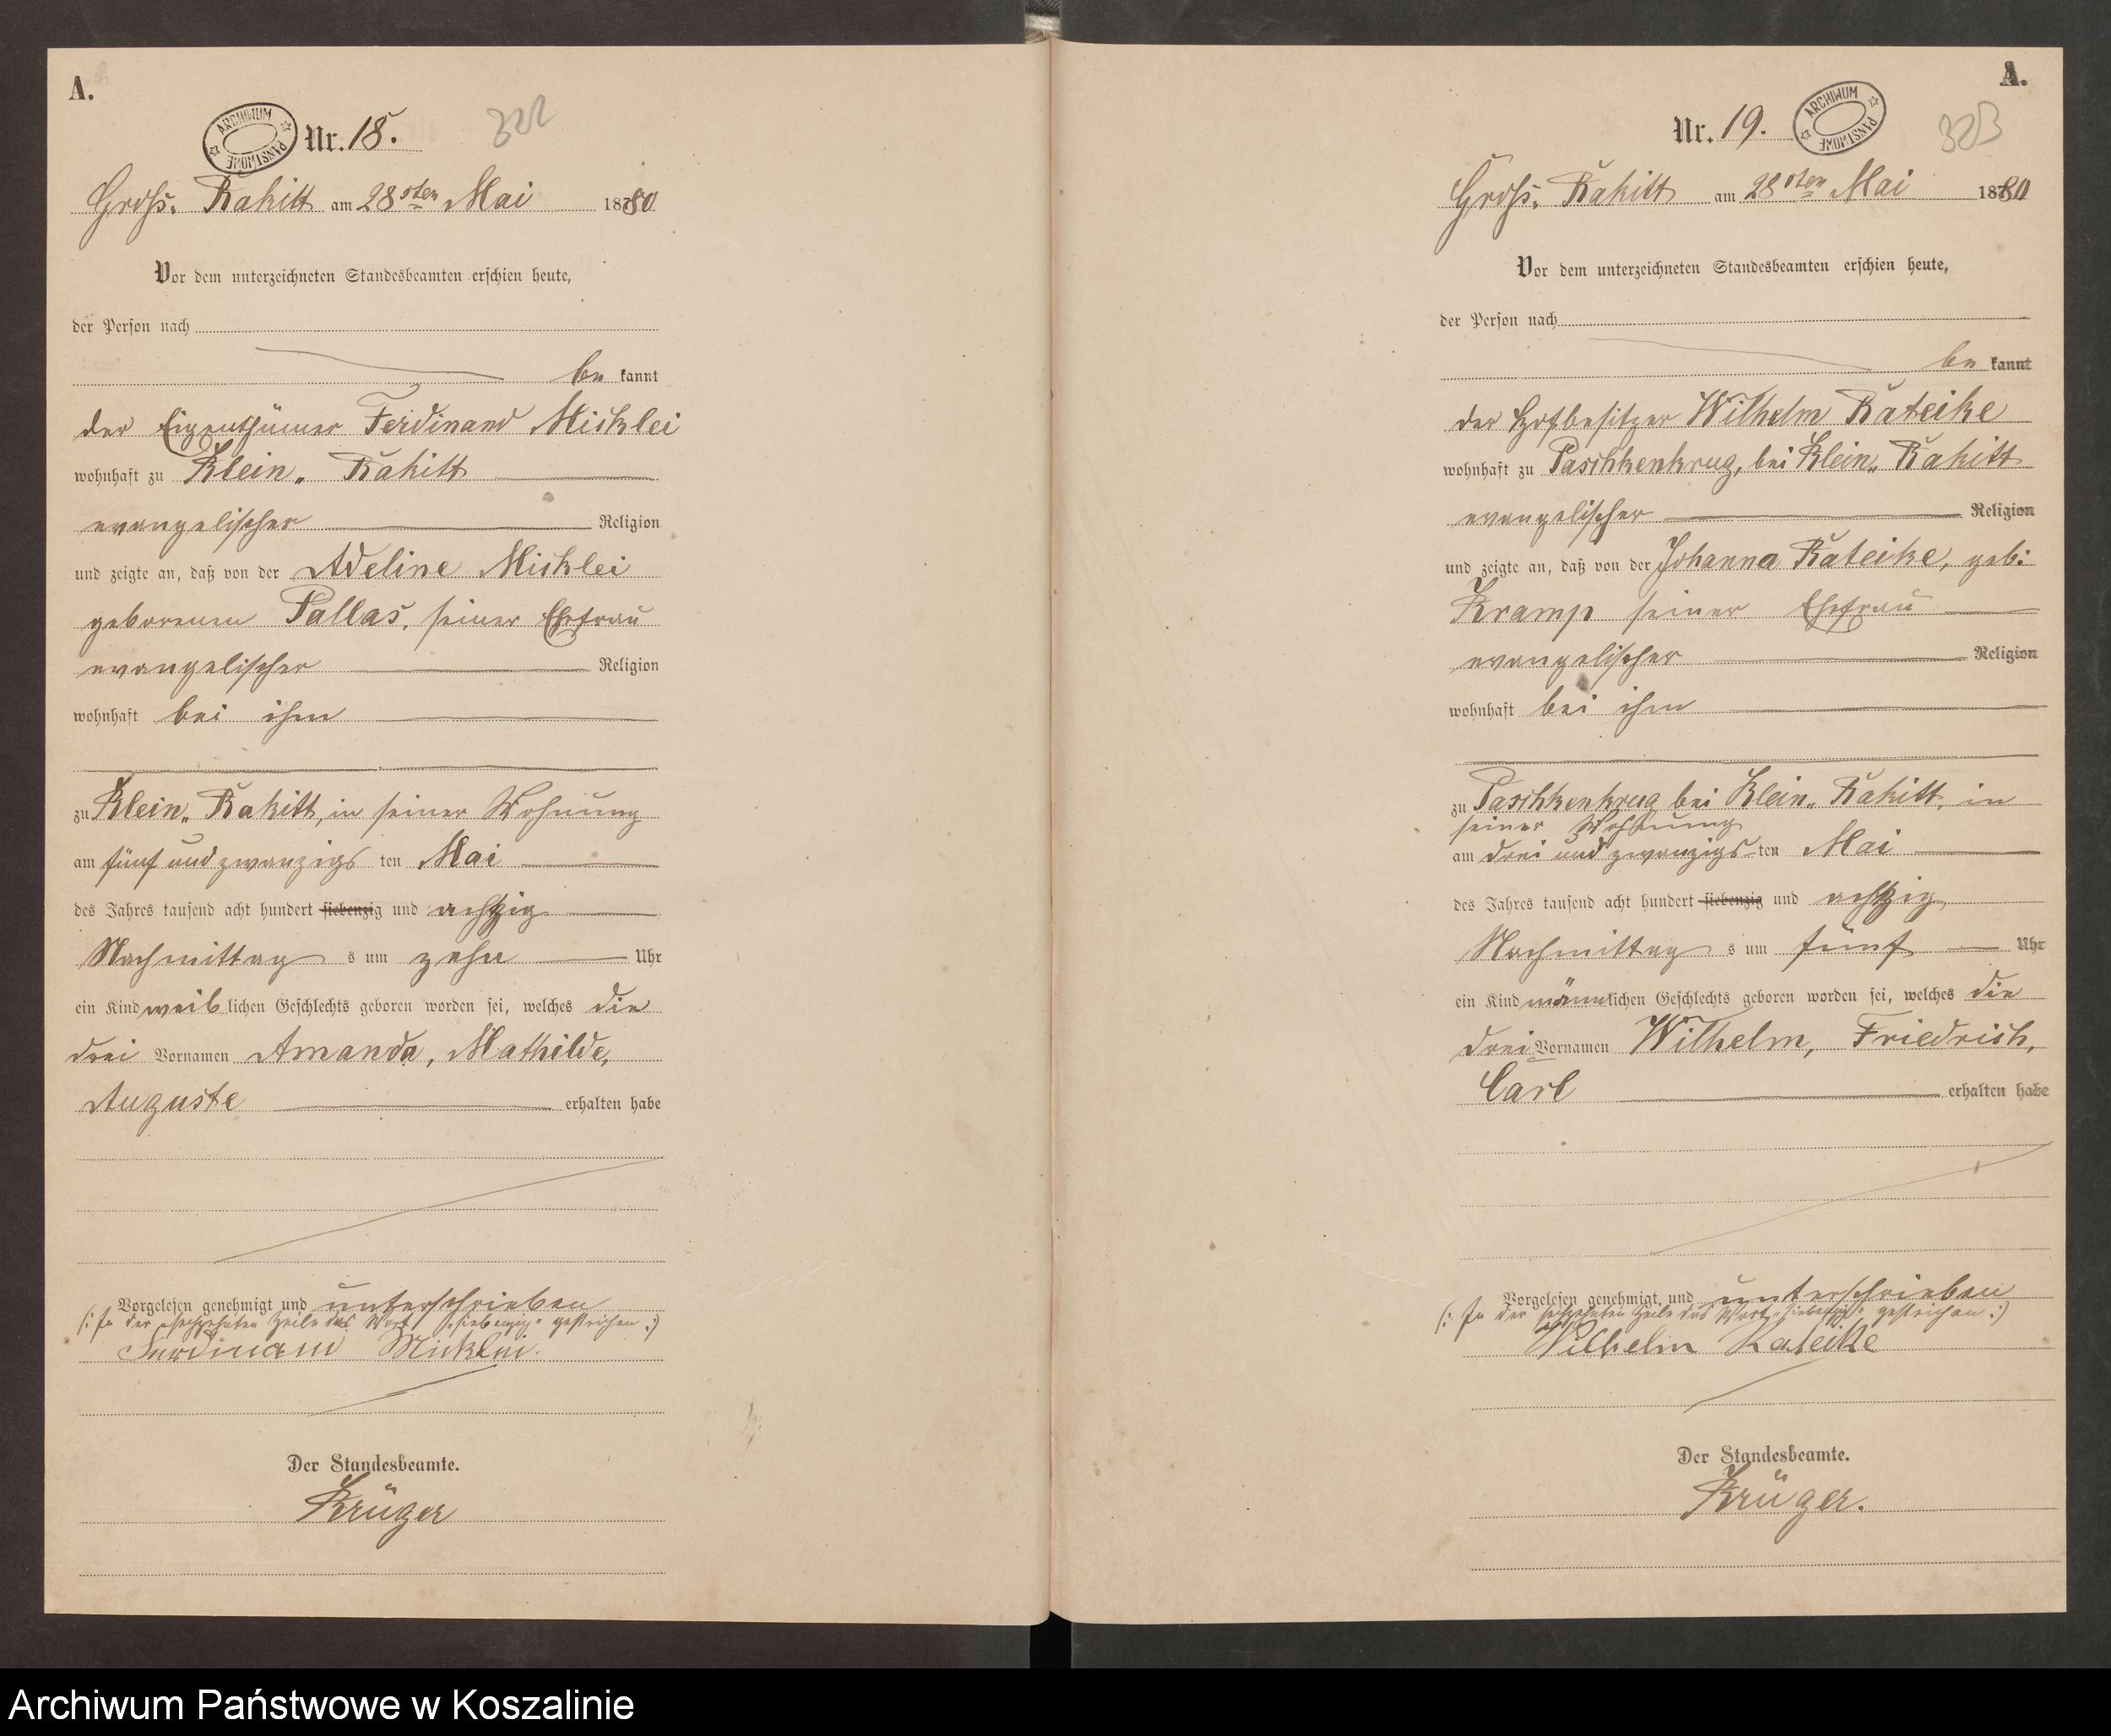 A.
ARCHIWUM PAŃSTWOWE
Nr. 18.
322
Gross. Rakitt am 28sten Mai 1880
Vor dem unterzeichneten Standesbeamten erschien heute,
der Person nach
be kannt
der Eigenthümer Ferdinand Micklei
wohnhaft zu Klein. Rakitt
evangelischer Religion
und zeigte an, daß von der Adeline Micklei
geborenen Pallas, seiner Ehefrau
evangelischer Religion
wohnhaft bei ihm
zu Klein. Rakitt, in seiner Wohnung
am fünf und zwanzigs ten Mai
des Jahres tausend acht hundert siebenzig und achtzig
Nachmittag s um zehn Uhr
ein Kind weib lichen Geschlechts geboren worden sei, welches die
drei Vornamen Amanda, Mathilde,
Auguste erhalten habe
Vorgelesen genehmigt und unterschrieben
(: In der sechzehnten Zeile das Wort „siebenzig“ gestrichen :)
Ferdinand Micklei.
Der Standesbeamte.
Krüger
A.
ARCHIWUM PAŃSTWOWE
Nr. 19.
323
Gross. Rakitt am 28sten Mai 1880
Vor dem unterzeichneten Standesbeamten erschien heute,
der Person nach
be kannt
der Hofbesitzer Wilhelm Rateike
wohnhaft zu Paschkenkrug, bei Klein. Rakitt
evangelischer Religion
und zeigte an, daß von der Johanna Rateike, geb:
Kramp seiner Ehefrau
evangelischer Religion
wohnhaft bei ihm
zu Paschkenkrug bei Klein. Rakitt, in
seiner Wohnung
am drei und zwanzigs ten Mai
des Jahres tausend acht hundert siebenzig und achtzig
Nachmittag s um fünf Uhr
ein Kind männ lichen Geschlechts geboren worden sei, welches die
drei Vornamen Wilhelm, Friedrich,
Carl erhalten habe
Vorgelesen genehmigt und unterschrieben
(: In der Zeile das Wort „siebenzig“ gestrichen :)
Wilhelm Rateike
Der Standesbeamte.
Krüger.
Archiwum Państwowe w Koszalinie